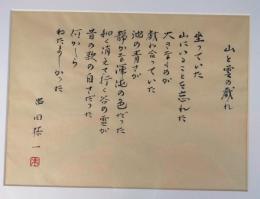 山と雲の戯れ
坐っていた
山にいることを忘れた
大きなものが
戯れ合っていた
池の青さが
静かな渾沌の色だった
細く消えて行く谷の雲が
昔の歌の白さだった
何かしら
ねたましかった
串田孫一